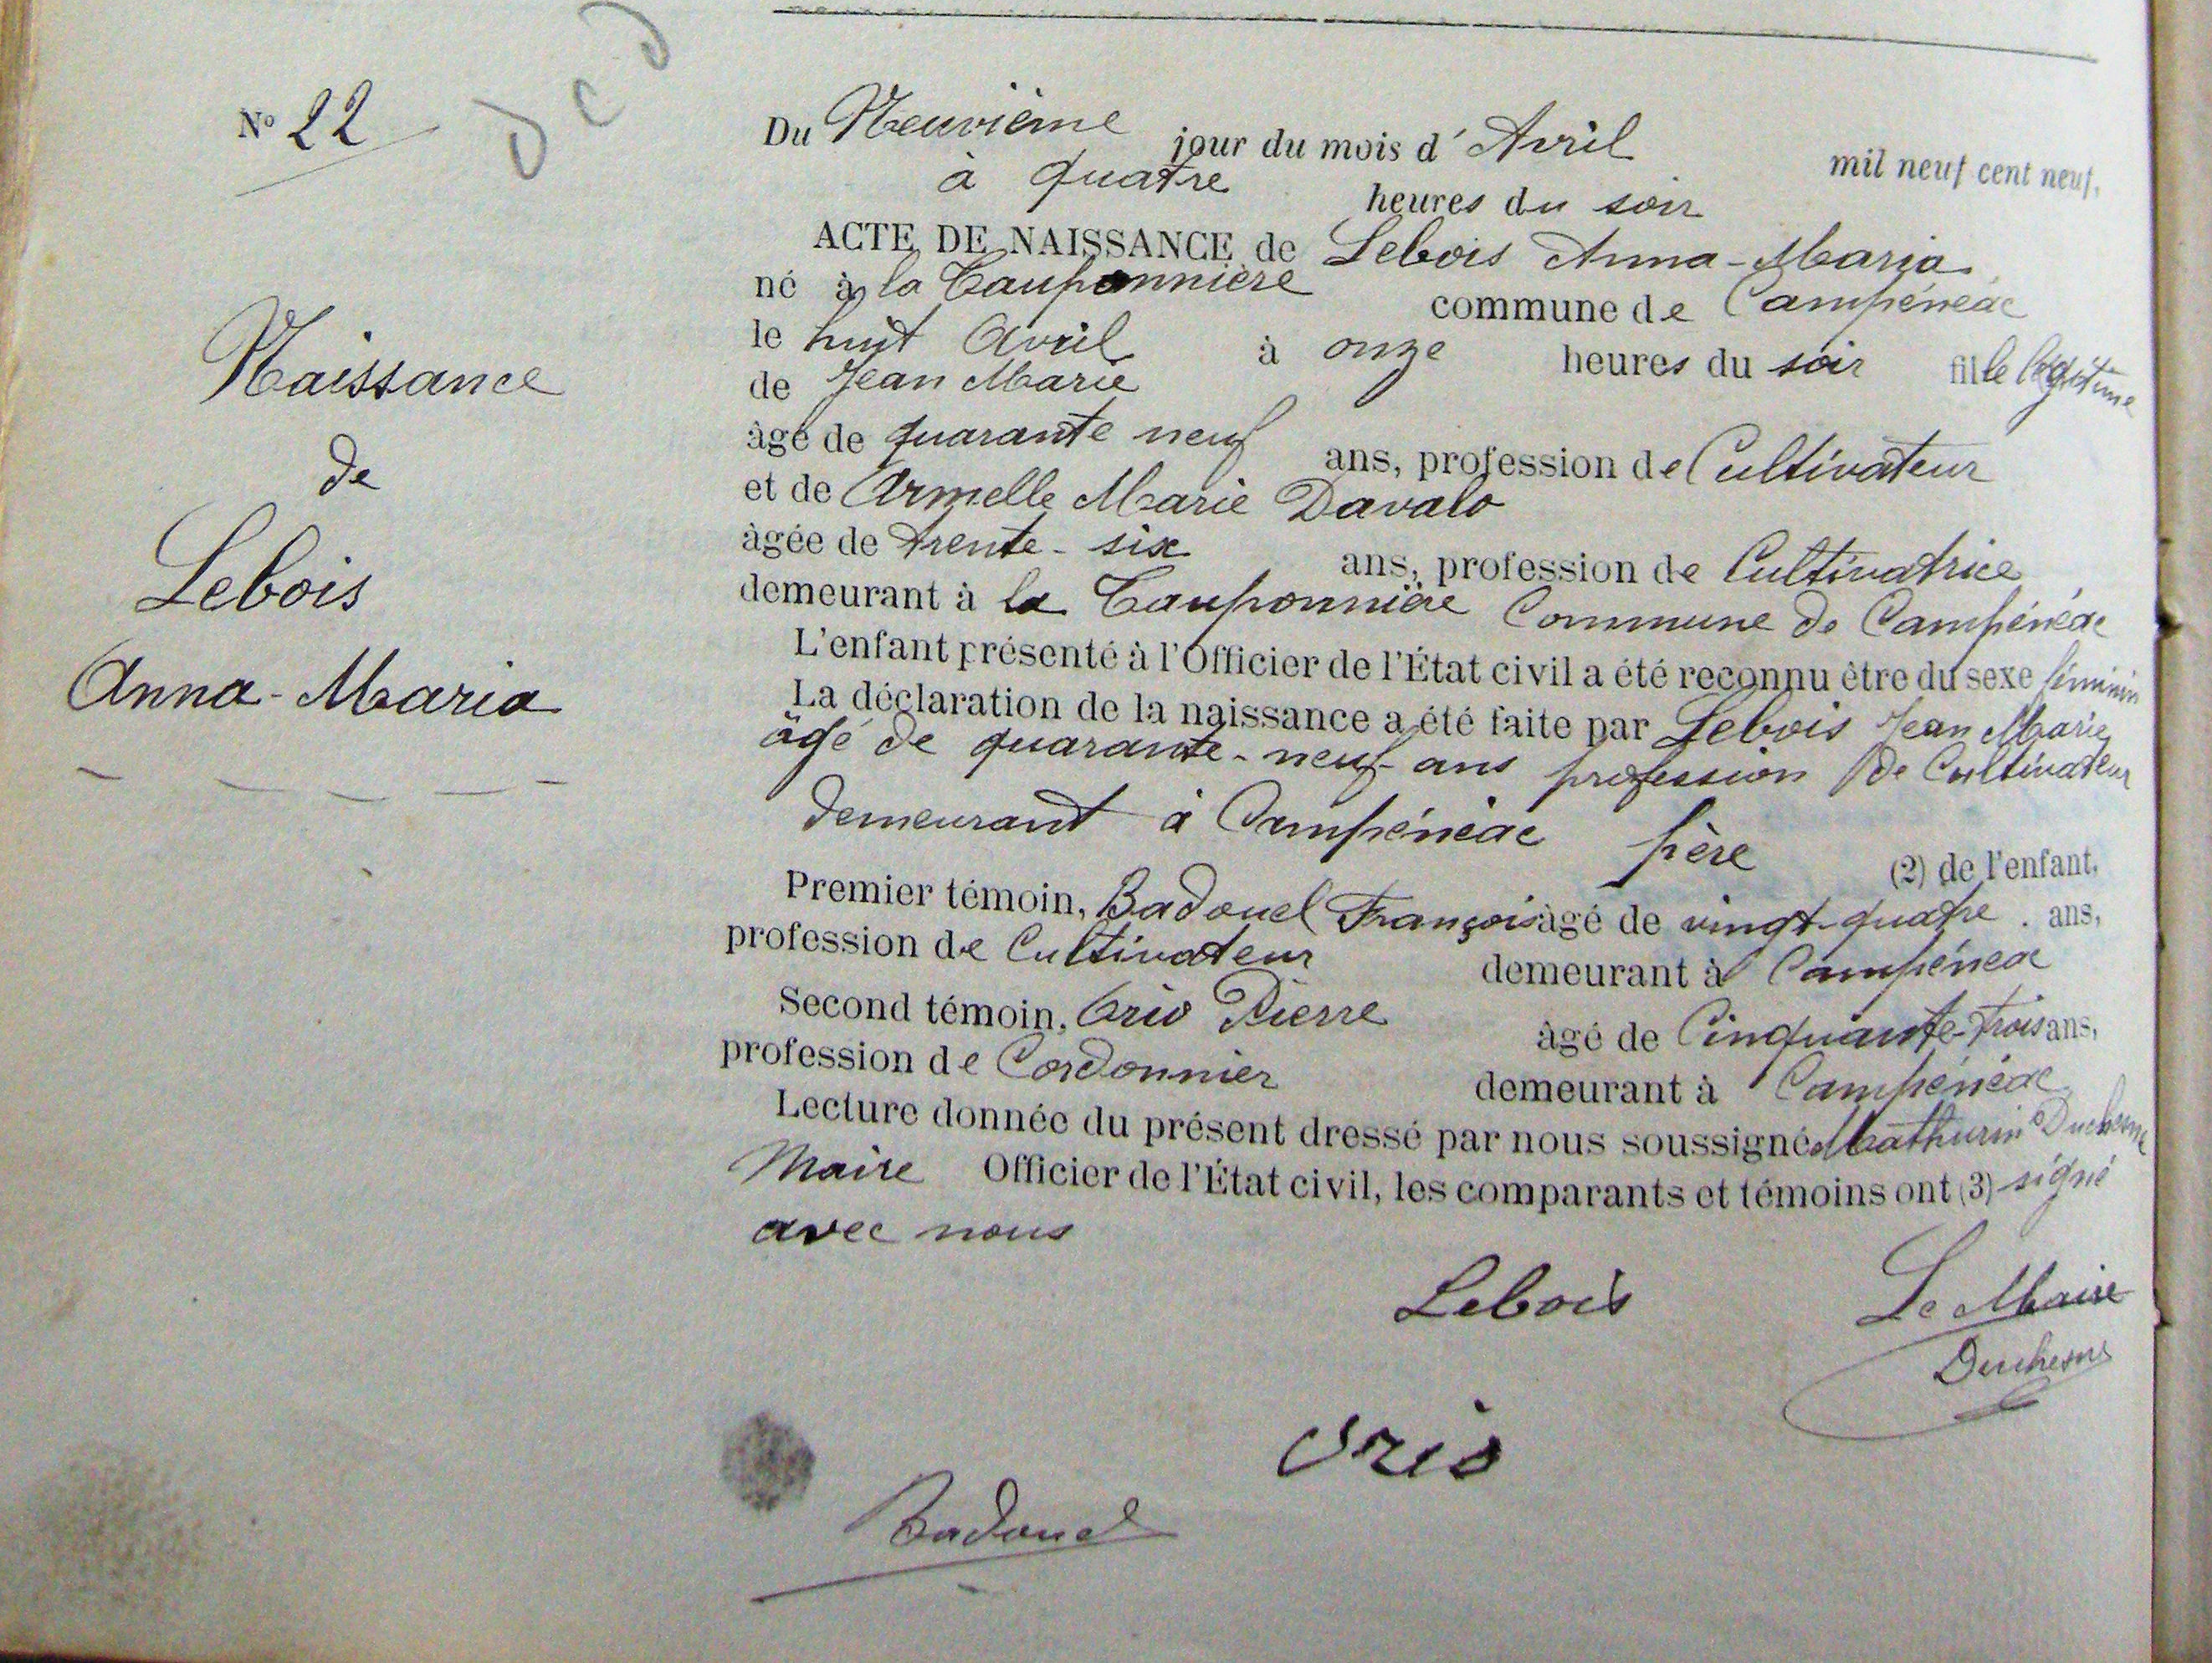 dcd
N° 22
Naissance
de
Lebois
Anna-Maria
Du Neuvième jour du mois d'Avril mil neuf cent neuf,
à quatre heures du soir
ACTE DE NAISSANCE de Lebois Anna-Maria
né à la Tauponnière commune de Campénéac
le huit Avril à onze heures du soir fille légitime
de Jean Marie
âgé de quarante neuf ans, profession de Cultivateur
et de Armelle Marie Davalo
âgée de trente-six ans, profession de Cultivatrice
demeurant à la Tauponnière Commune de Campénéac
L'enfant présenté à l'Officier de l'État civil a été reconnu être du sexe féminin
La déclaration de la naissance a été faite par Lebois Jean Marie
âgé de quarante-neuf ans profession de Cultivateur
demeurant à Campénéac père (2) de l'enfant.
Premier témoin, Badouel François âgé de vingt-quatre ans,
profession de Cultivateur demeurant à Campénéac
Second témoin, Orio Pierre âgé de Cinquante-trois ans,
profession de Cordonnier demeurant à Campénéac
Lecture donnée du présent dressé par nous soussigné Mathurin Duchesne
Maire Officier de l'État civil, les comparants et témoins ont (3) signé
avec nous
Lebois Le Maire
Duchesne
Orio
Badouel